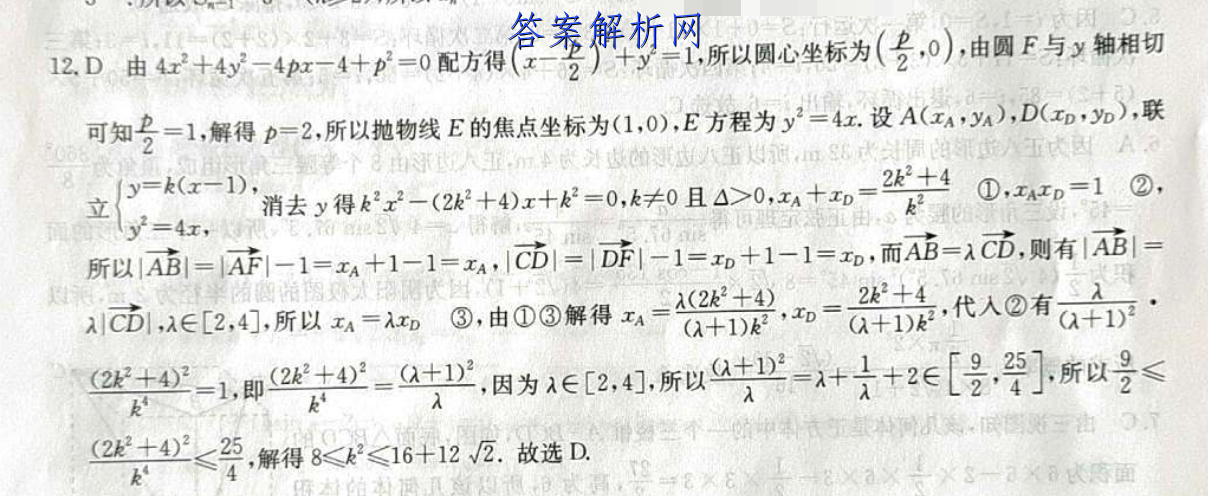 答案解析网
12. D 由 4x²+4y²−4px−4+p²=0 配方得(x−p/2)²+y²=1,所以圆心坐标为(p/2,0),由圆 F 与 y 轴相切
可知p/2=1,解得 p=2,所以抛物线 E 的焦点坐标为(1,0),E 方程为 y²=4x. 设 A(x_A,y_A),D(x_D,y_D),联
立{y=k(x−1), y²=4x, 消去 y 得 k²x²−(2k²+4)x+k²=0,k≠0 且 Δ>0,x_A+x_D=(2k²+4)/k² ①,x_Ax_D=1 ②,
所以|AB|=|AF|−1=x_A+1−1=x_A,|CD|=|DF|−1=x_D+1−1=x_D,而AB=λCD,则有|AB|=
λ|CD|,λ∈[2,4],所以 x_A=λx_D ③,由①③解得 x_A=λ(2k²+4)/((λ+1)k²),x_D=(2k²+4)/((λ+1)k²),代入②有λ/(λ+1)²·
(2k²+4)²/k⁴=1,即(2k²+4)²/k⁴=(λ+1)²/λ,因为 λ∈[2,4],所以(λ+1)²/λ=λ+1/λ+2∈[9/2,25/4],所以9/2≤
(2k²+4)²/k⁴≤25/4,解得 8≤k²≤16+12√2. 故选 D.